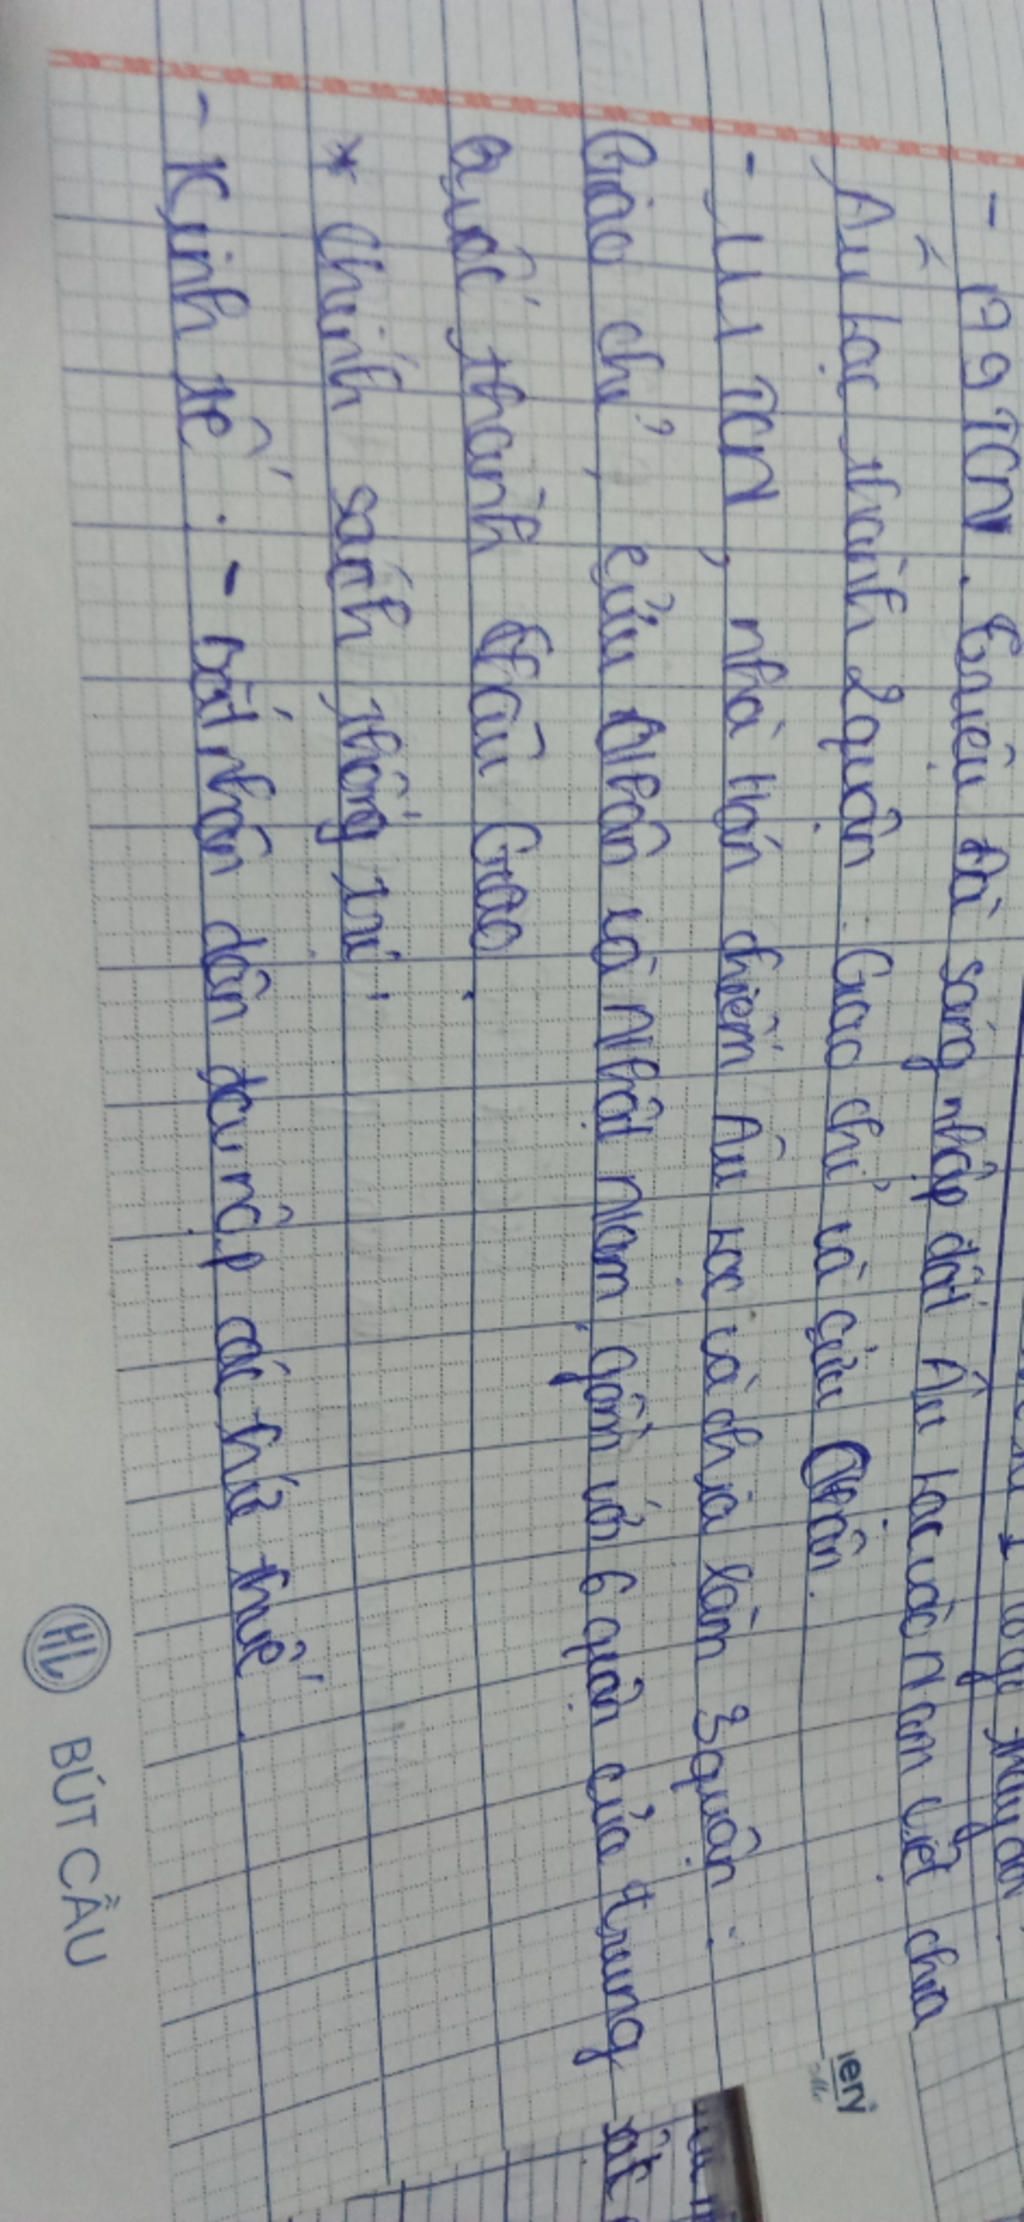 thay đổi
- 179 TCN. Triệu Đà sáng nhập đất Âu Lạc vào Nam Việt chia
Âu Lạc thành 2 quận: Giao chỉ và cửu Chân.
- 111 TCN, nhà Hán chiếm Âu Lạc và chia làm 3 quận:
Giao chỉ, cửu Chân và Nhật Nam, gồm với 6 quận của trung
Quốc thành Châu Giao.
* Chính sách thống trị:
- Kinh tế: - bắt nhân dân ta nộp các thứ thuế.
HL BÚT CẦU